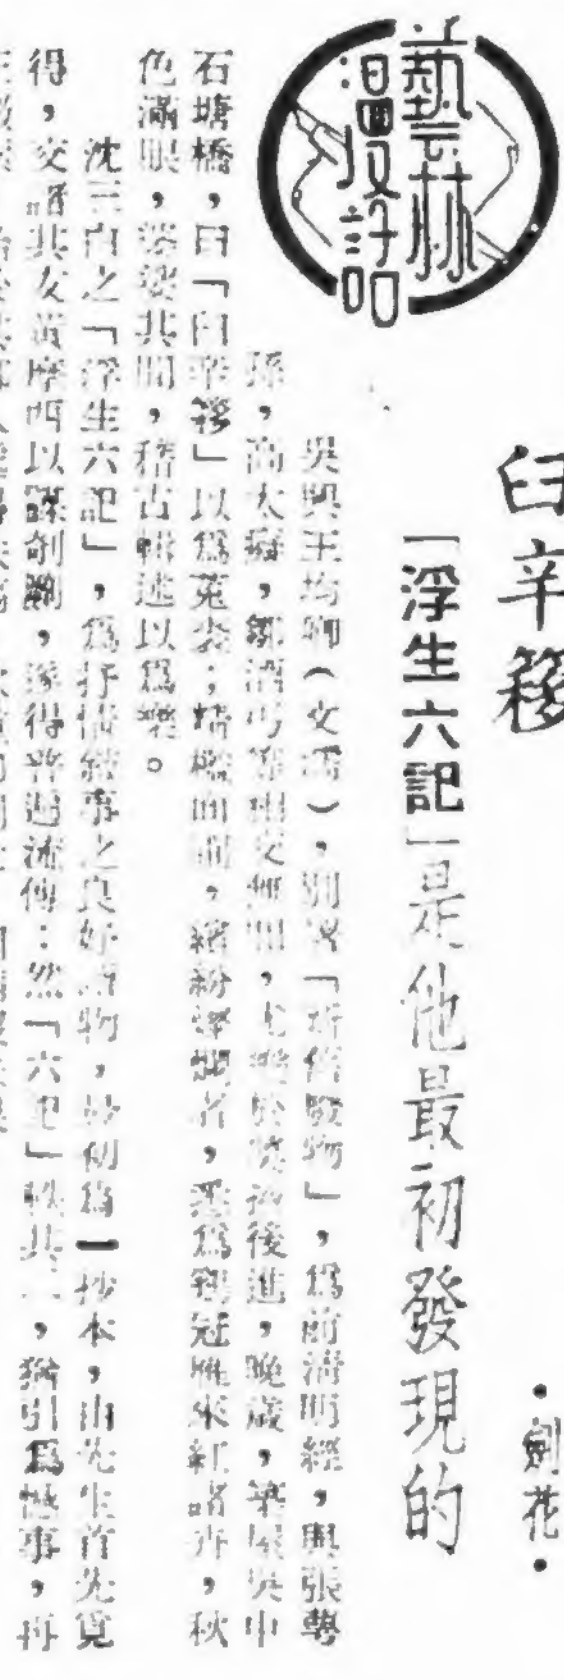 藝林
漫話
臼辛簃
「浮生六記」是他最初發現的
・劍花・
吳興王均卿(文濡),別署「新舊廢物」,爲前淸明經,與張萼
孫,高太癡,鄒酒丐等相交無間,尤樂於獎掖後進,晚歲,築屋吳中
石塘橋,曰「臼辛簃」以爲菟裘;精檻曲, 繽紛斕者,悉爲雞冠雁來紅諸卉,秋
色滿眼,婆娑其間,稽古輯述以爲樂。
沈三白之「浮生六記」,爲抒情敍事之良好讀物,最初爲一抄本,由先生首先覓
得,交諸其友黃摩西以謀剞劂,遂得普遍流傳;然「六記」軼其二,猶引爲憾事,再